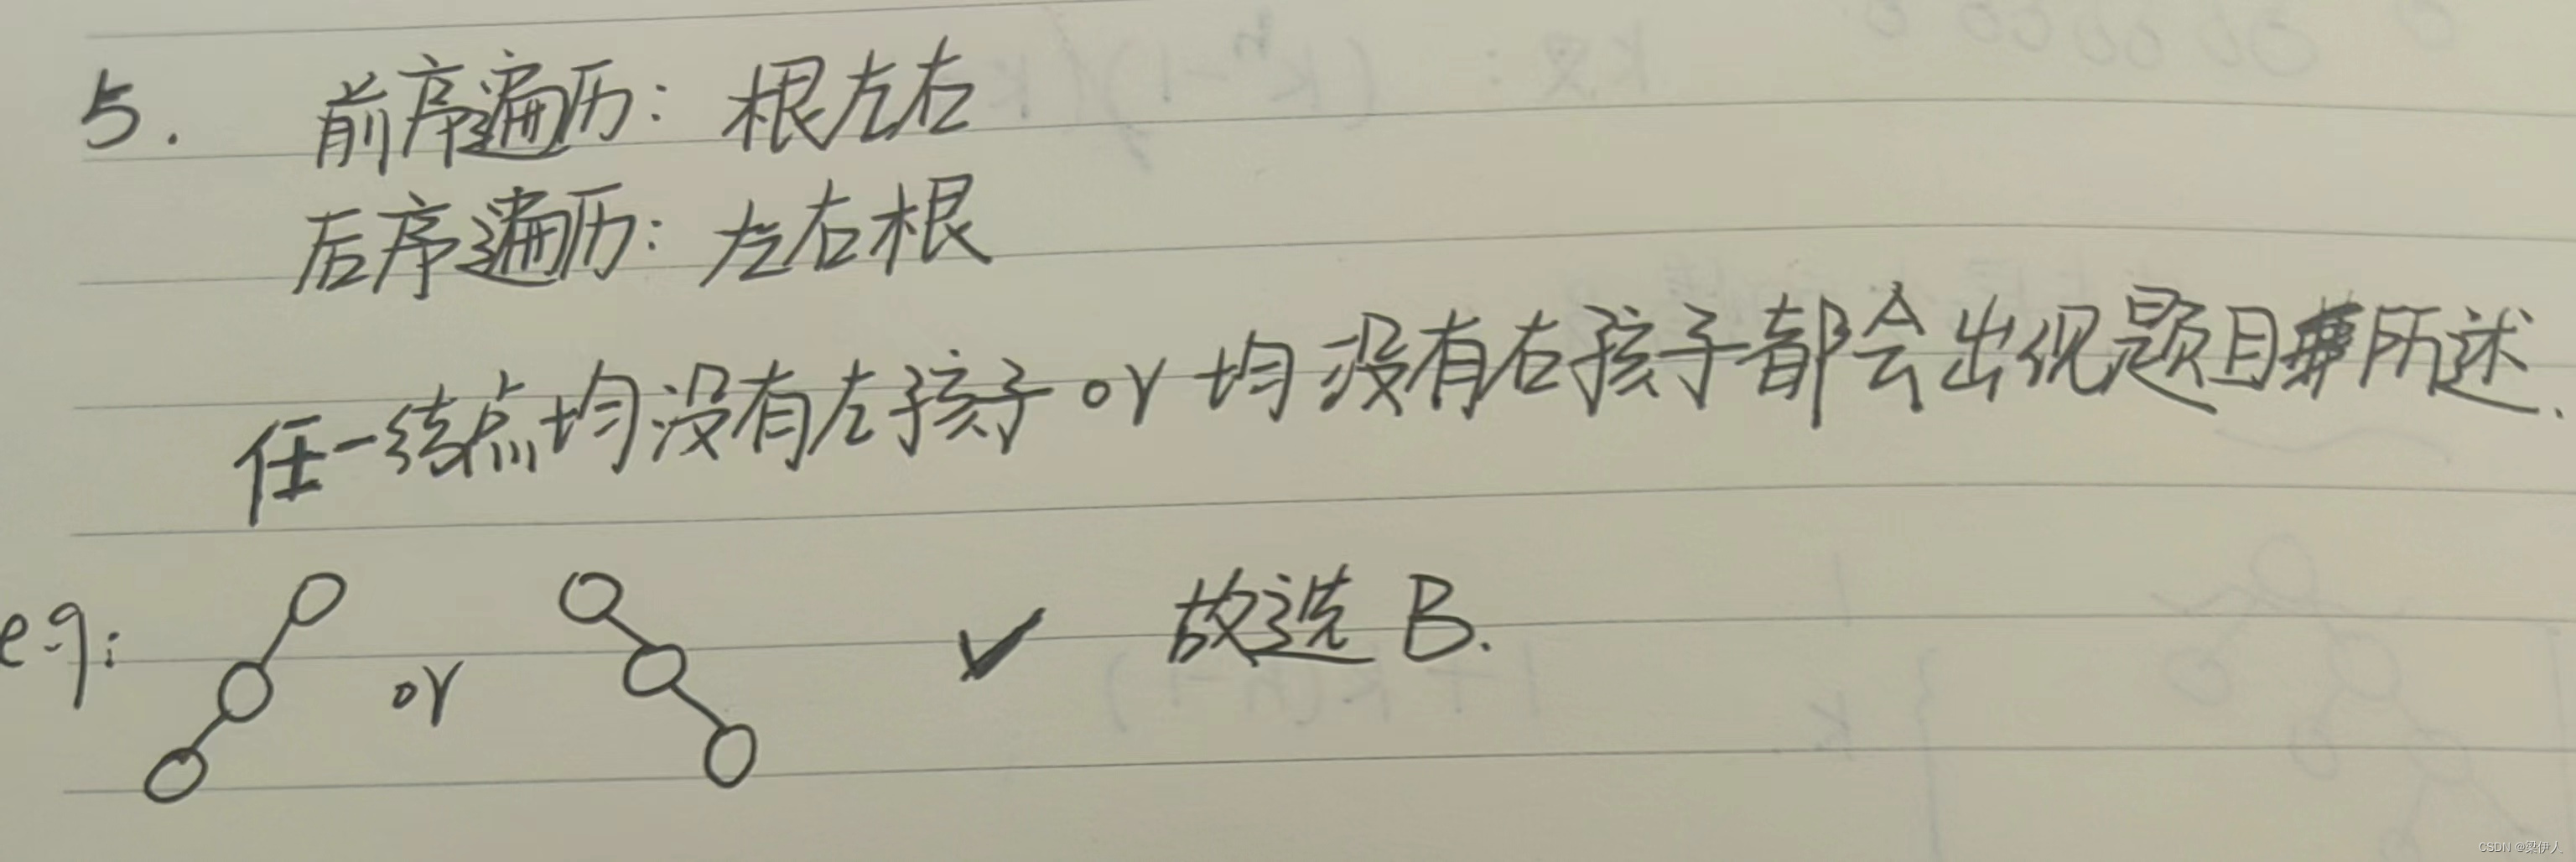 5. 前序遍历: 根左右
后序遍历: 左右根
任一结点均没有左孩子 or 均没有右孩子都会出现题目所述.
eg: or 故选 B.
CSDN @梁伊人